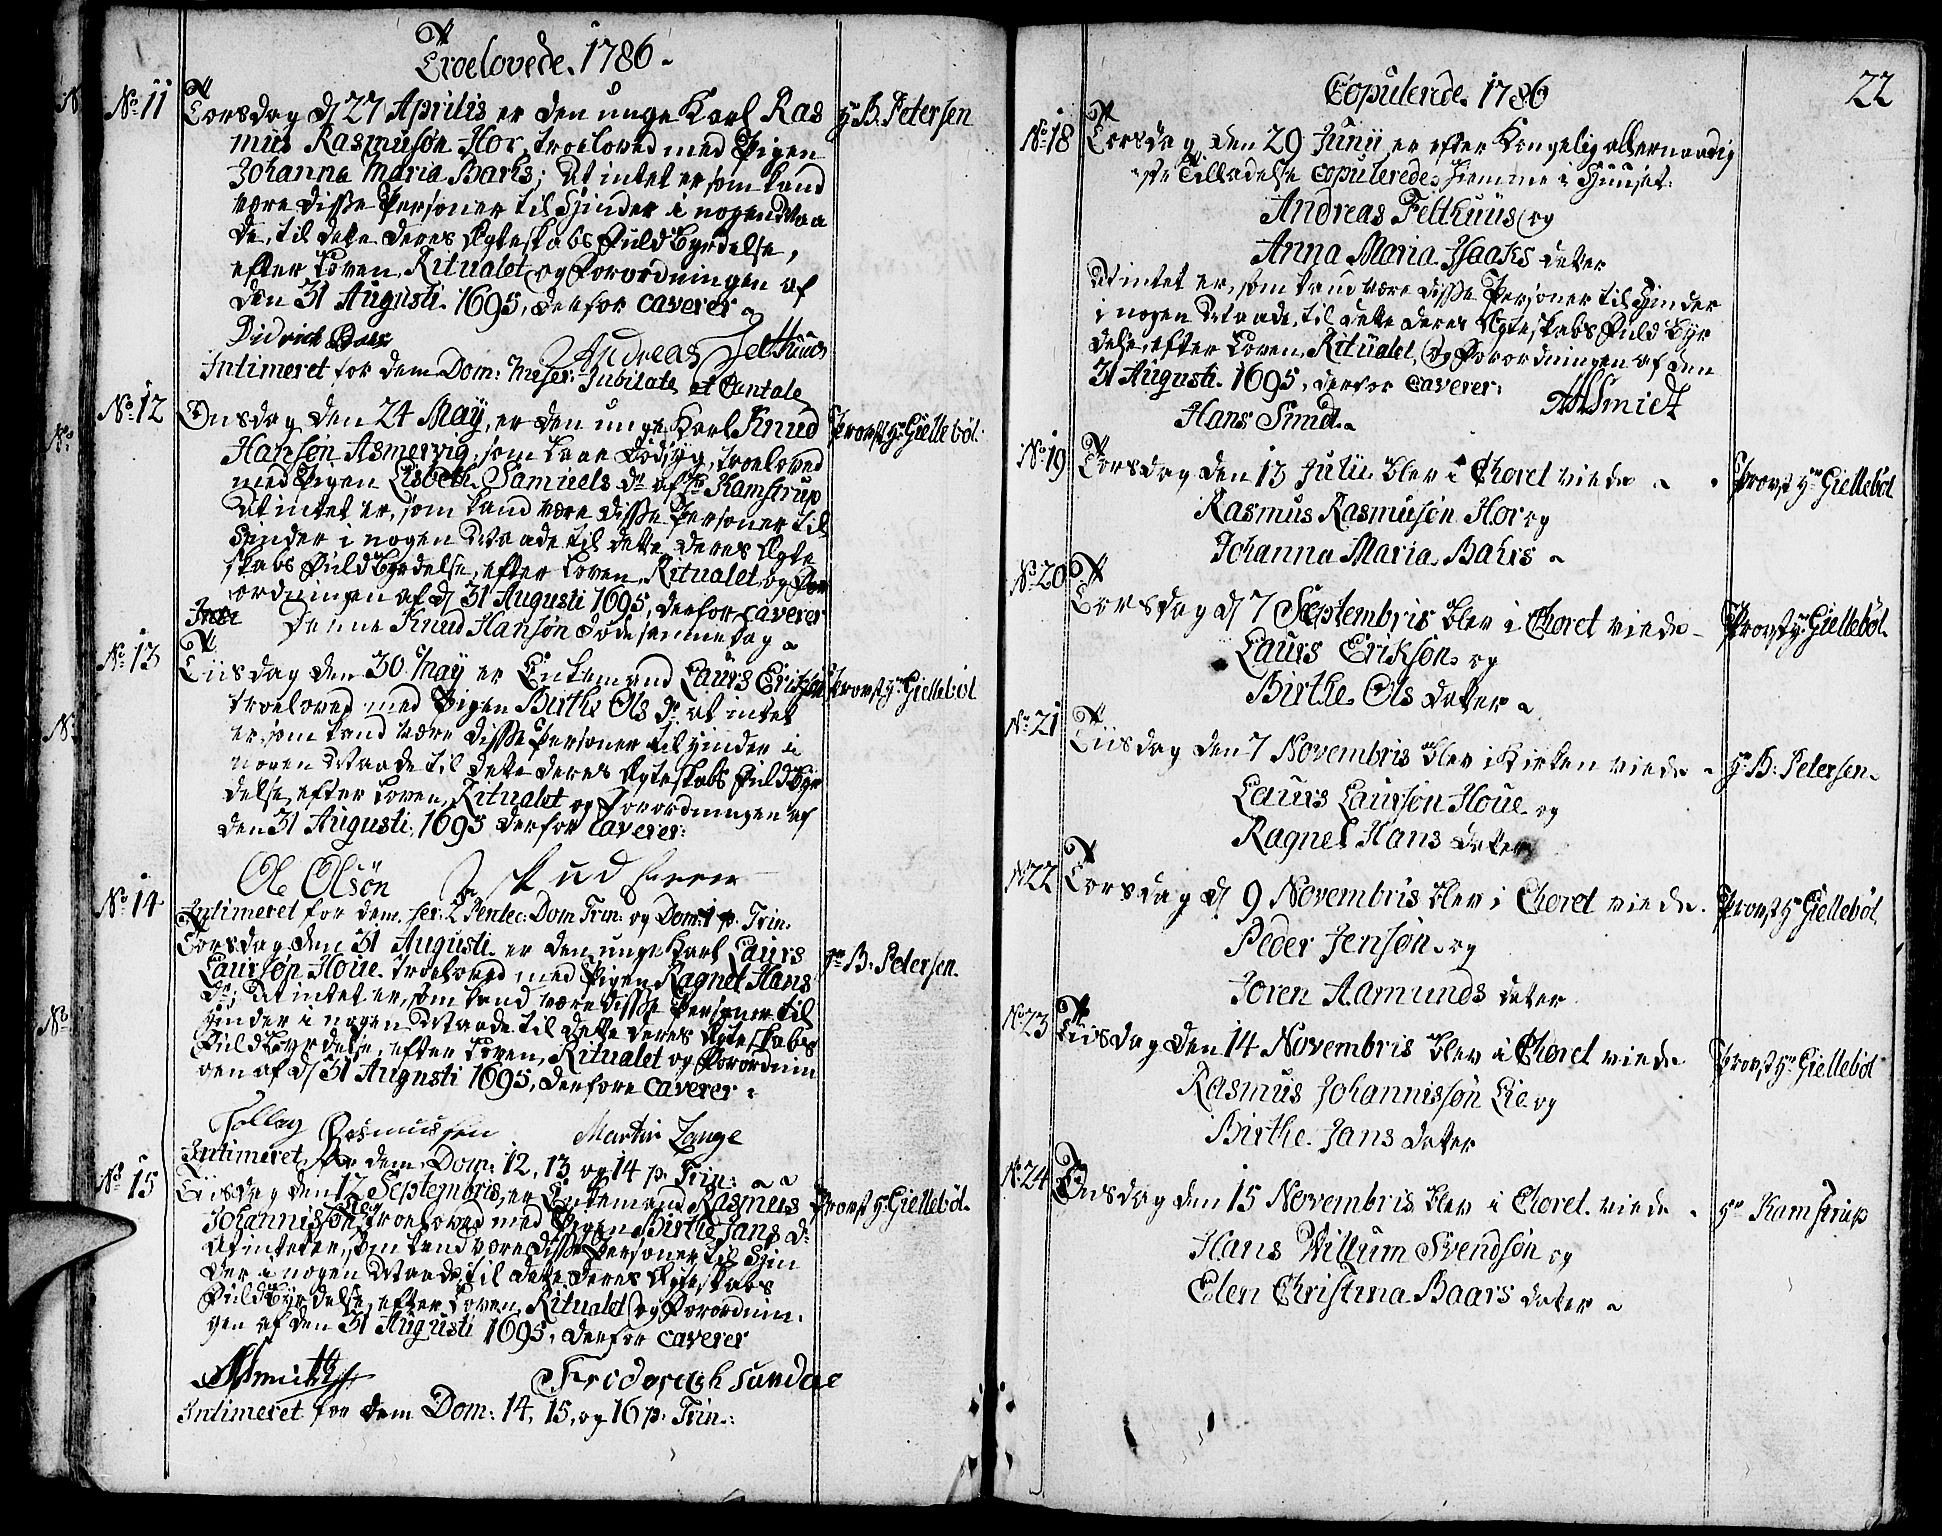 Troelovede. 1786.
No 11
Torsdag d 27 Aprilis er den unge Karl Ras
mus Rasmusøn Hor, troeloved med Pigen
Johanna Maria Barhs; At intet er som kand
være disse Personer til Hinder i nogen Maa
de, til dette deres Ægteskabs Fuldbyrdelse,
efter Loven, Ritualet og Forordningen af
den 31 Augusti. 1695, derfor caverer
Didrich Baes Andreas Felthuus
Intimeret for dem Dom: Miser: Jubilate et Cantate
Hr B. Petersen
No 12
Onsdag den 24 Maÿ, er den unge Karl Knud
Hansøn Asmervig, som laae Dødsyg, troeloved
med Pigen Lisbeth Samuels dr af Hr Kamstrup
At intet er, som kand være disse Personer til
Hinder i nogen Maade til dette deres Ægte
skabs Fuldbyrdelse, efter Loven, Ritualet og For
ordningen af d 31 Augusti 1695, derfor caverer
Denne Knud Hansøn døde samme dag
Provst Hr Gielleböl.
No 13
Tiisdag den 30 Maÿ er Enkemand Laurs Erichsøn
troeloved med Pigen Birthe Ols dr at intet
er, som kand være disse Personer til Hinder i
nogen Maade til dette deres Ægteskabs Fuldbyr
delse, efter Loven, Ritualet og Forordningen af
den 31 Augusti, 1695 derfor caverer:
Ole Olsön
Provst Hr Gielleböl
No 14
Intimeret for dem. fer: 2 Pentec: Dom Trin: og Dom: 1 p. Trin.
Torsdag den 31 Augusti er den unge Karl Laurs
Laursøn Houe troeloved med Pigen Ragnel Hans
dr; At intet er, som kand være disse Personer til
Hinder i nogen Maade til dette deres Ægteskabs
Fuldbyrdelse, efter Loven, Ritualet og Forordnin
gen af d 31 Augusti 1695, derfore caverer
Tolleg Rasmussen Martin Lange
Intimeret for dem Dom: 12, 13 og 14 p. Trin:
Hr B. Petersen.
No 15
Tiisdag den 12 Septembris, er Enkemand Rasmus
Johannissøn troeloved med Pigen Birthe Jans dr
At intet er, som kand være disse Personer til Hin
der i nogen Maade, til dette deres Ægteskabs
Fuldbyrdelse, efter Loven, Ritualet og Forordnin
gen af den 31 Augusti 1695, derfor caverer
Friderich Sundae
Intimeret for dem Dom: 14, 15, og 16 p. Trin:
Provst Hr Gielleböl.
Copulerede. 1786
22
No 18
Torsdag den 29 Junii er efter Kongelig allernaadig
ste Tilladelse copulerede hiemme i Huuset.
Andreas Felthuus og
Anna Maria Isaaks dater
At intet er, som kand være disse Personer til Hinder
i nogen Maade, til dette deres Ægteskabs Fuldbyr
delse, efter Loven, Ritualet, og Forordningen af den
31 Augusti. 1695, derfor caverer:
Hans Smidt. Smidt
No 19
Torsdag den 13 Julii blev i Choret viede
Rasmus Rasmusøn Hor og
Johanna Maria Bahrs
Provst Hr Gielleböl
No 20
Torsdag d 7 Septembris blev i Choret viede
Laurs Eriksøn og
Birthe Ols dater
Provst Hr Gielleböl.
No 21
Tiisdag den 7 Novembris blev i Kirken viede
Laurs Laursøn Houe og
Ragnel Hans dater
Hr B: Petersen.
No 22
Torsdag d 9 Novembris blev i Choret viede.
Peder Jensøn og
Joren Aamunds dater
Provst Hr Gielleböl
No 23
Tiisdag den 14 Novembris blev i Choret viede
Rasmus Johannissøn Lie og
Birthe Jans dater
Provst Hr Gielleböl
No 24
Onsdag den 15 Novembris blev i Choret viede
Hans Willum Svendsøn og
Elen Christina Baars dater
Hr Kamstrup